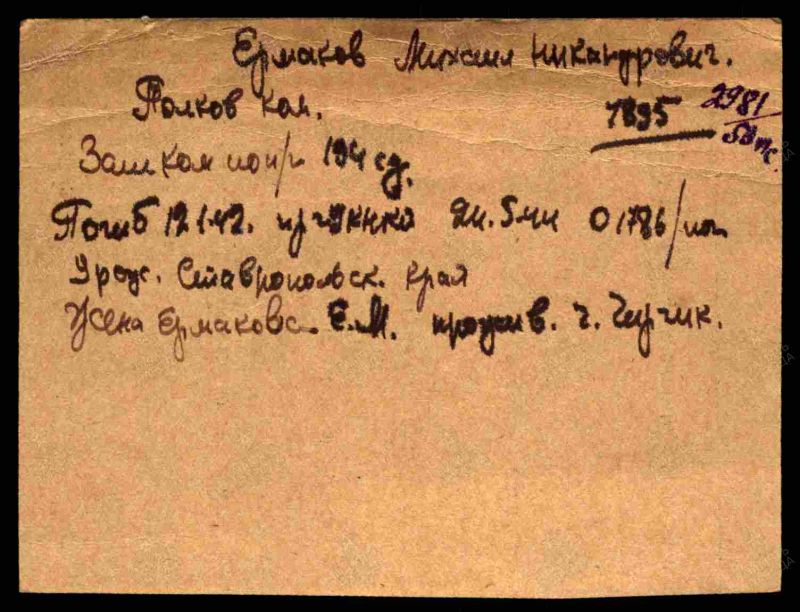 Ермаков Михаил Никандрович.
Полков ком. 1895 2981/
Зам ком по п/ч 194 сд.
Погиб 12.1.42. пр. УКНКА ОИ. 5/пол
Урож. Ставропольск. края
Жена Ермакова Е.М. прожив. г. Чирчик.